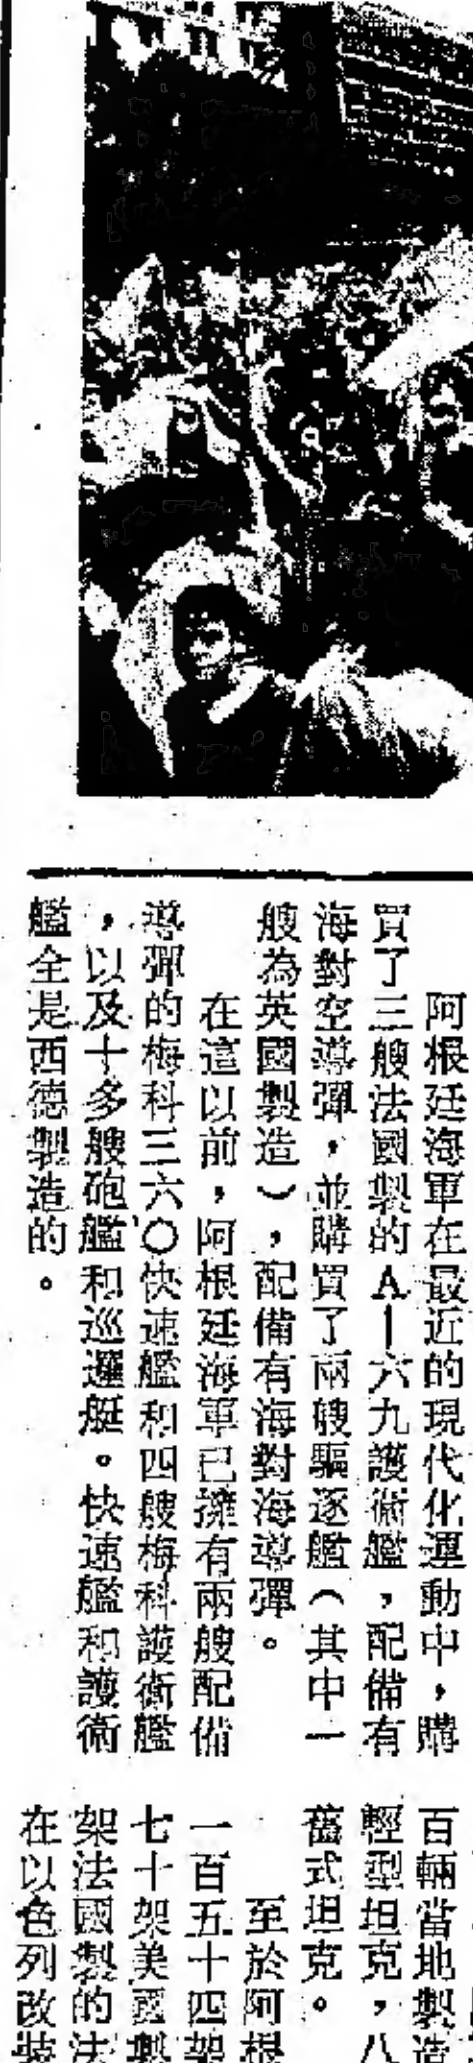 阿根廷海軍在最近的現代化運動中，購
買了三艘法國製的A－六九護衛艦，配備有
海對空導彈，並購買了兩艘驅逐艦（其中一
艘為英國製造），配備有海對海導彈。
在這以前，阿根廷海軍已擁有兩艘配備
導彈的梅科三六〇快速艦和四艘梅科護衛艦
，以及十多艘砲艦和巡邏艇。快速艦和護衛
艦全是西德製造的。
百輛當地製造
輕型坦克，八
舊式坦克。
至於阿根
一百五十四架
七十架美國製
架法國製的法
在以色列改裝